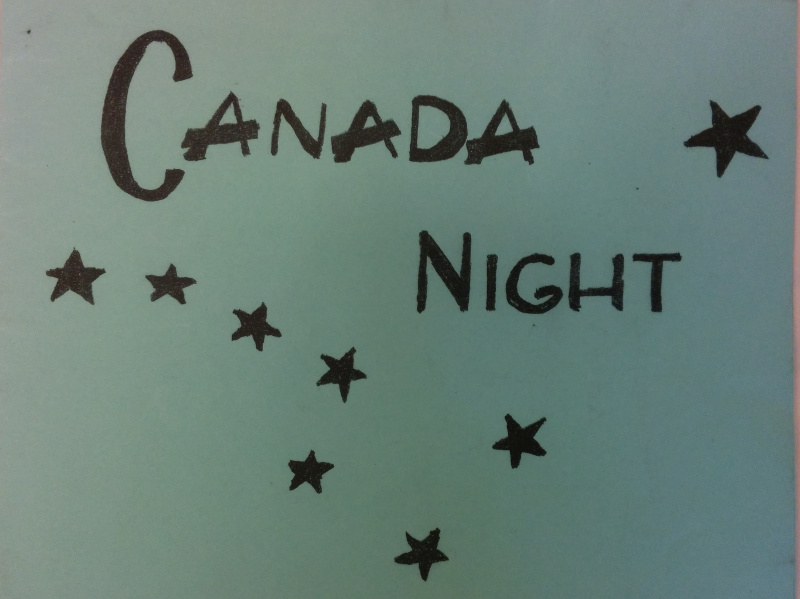 CANADA
NIGHT